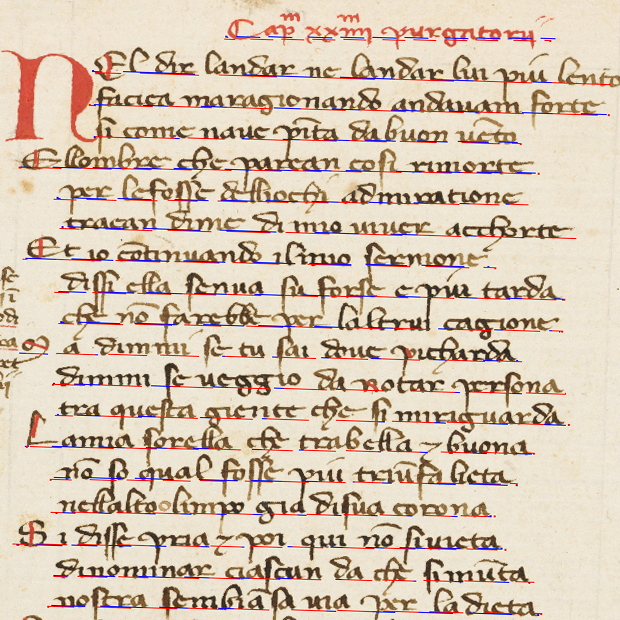 Cap̅m xxiiiim purgatorij
NEl dir landar ne landar lui piu lento
faciea maragionando andauam forte
si come naue pĩta dabuon uẽto
Ellombre che parean cosi rimorte
per lefosse dellliochi admiratione
traean dime di mio uiuer acchorte
Et io cõtinuando ilmio sermone
dissi ella senua su forse e piu tarda
che nõ farebbe per laltrui cagione
Ma dimmi se tu sai doue picharda
dimmi se ueggio da notar persona
tra questa giente che si miriguarda
Lamia sorella che trabella ⁊ buona
nõ so qual fosse piu triũfa lieta
nellalto olimpo gia disua corona
Si disse pria ⁊ poi qui nõ siuieta
dinominar ciascun da che simũta
nostra sembiãsa uia per la dieta